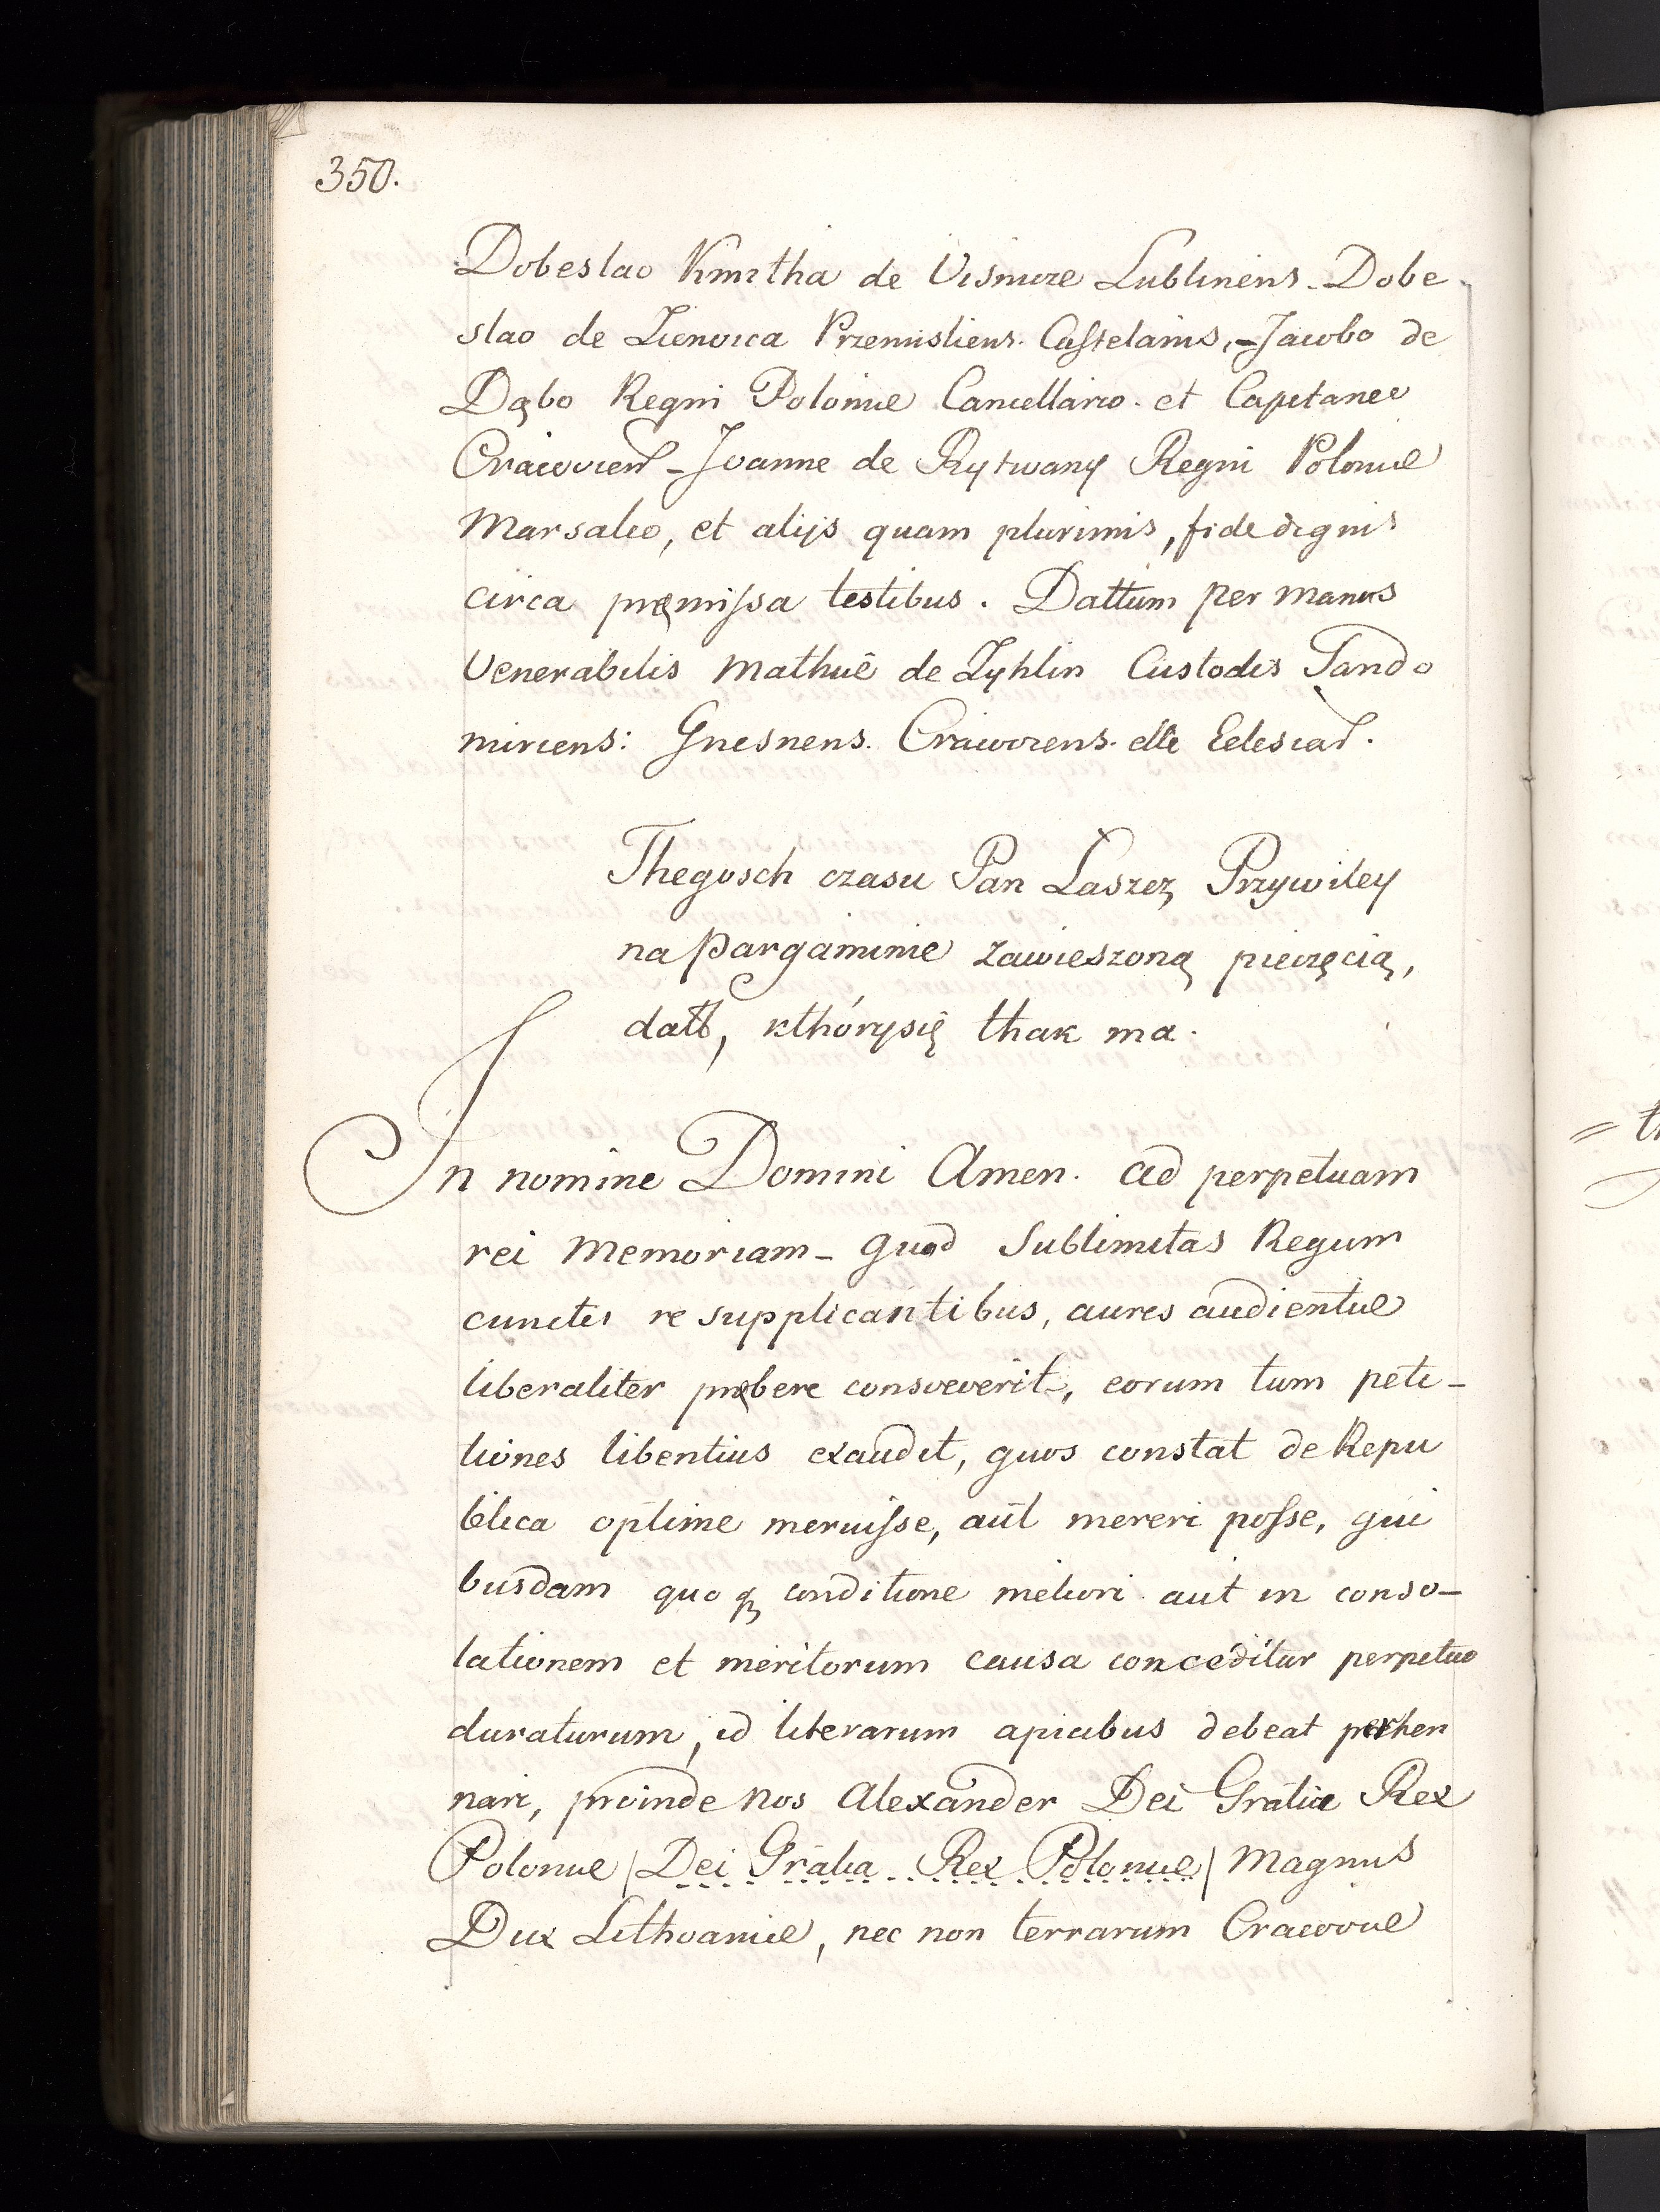 350.
Dobeslao Kmitha de Visnize Lublinens. Dobe
slao de Zienvica Przemisliens. Castelanis, - Jacobo de
Dąbo Regni Polonie Cancellario. et Capitanee
Craiovien - Joanne de Rytwany Regni Polonie
Marsaleo, et alijs quam plurimis, fide dignis
circa pręmissa testibus. Dattum per manus
Venerabilis Mathiê de Zyhlin Custodis Sando
miriens: Gnesnens. Craioviens. elle Eclesiar.
Thegosch czasu Pan Laszcz Przywiley
na Pargaminie zawieszoną pieczęcią,
datt, kthórysię thak ma.
In nomine Domini Amen. Ad perpetuam
rei Memoriam - Quod Sublimitas Regum
cunctis re supplicantibus, aures audientie
liberaliter prębere consveverit, eorum tum peti-
tiones libentius exaudit, quos constat de Repu
blica optime meruisse, aut mereri posse, qui
busdam quoq conditione meliori aut in conso-
lationem et meritorum causa conceditur perpetuo
duraturum, id literarum apicibus debeat perhen
nari, proinde Nos Alexander Dei Gratia Rex
Polonie / Dei Gratia Rex Polonie / Magnus
Dux Lithvanie, nec non terrarum Cracovie